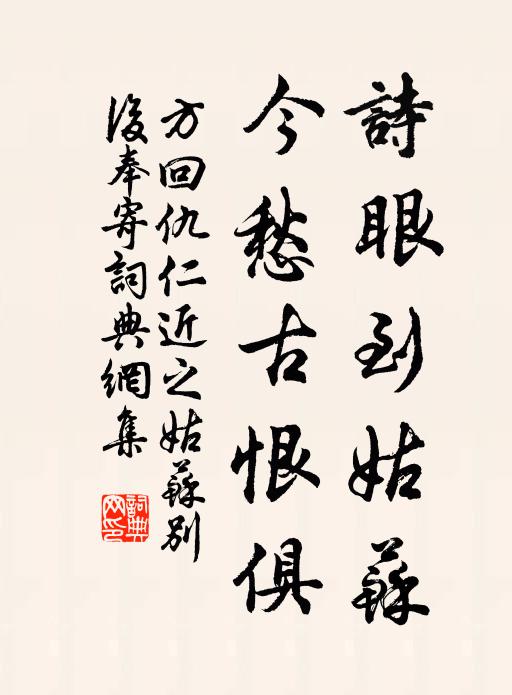 詩眼到姑蘇
今愁古恨俱
方回仇仁近之姑蘇別
後奉寄詞典網集
詞典
网印